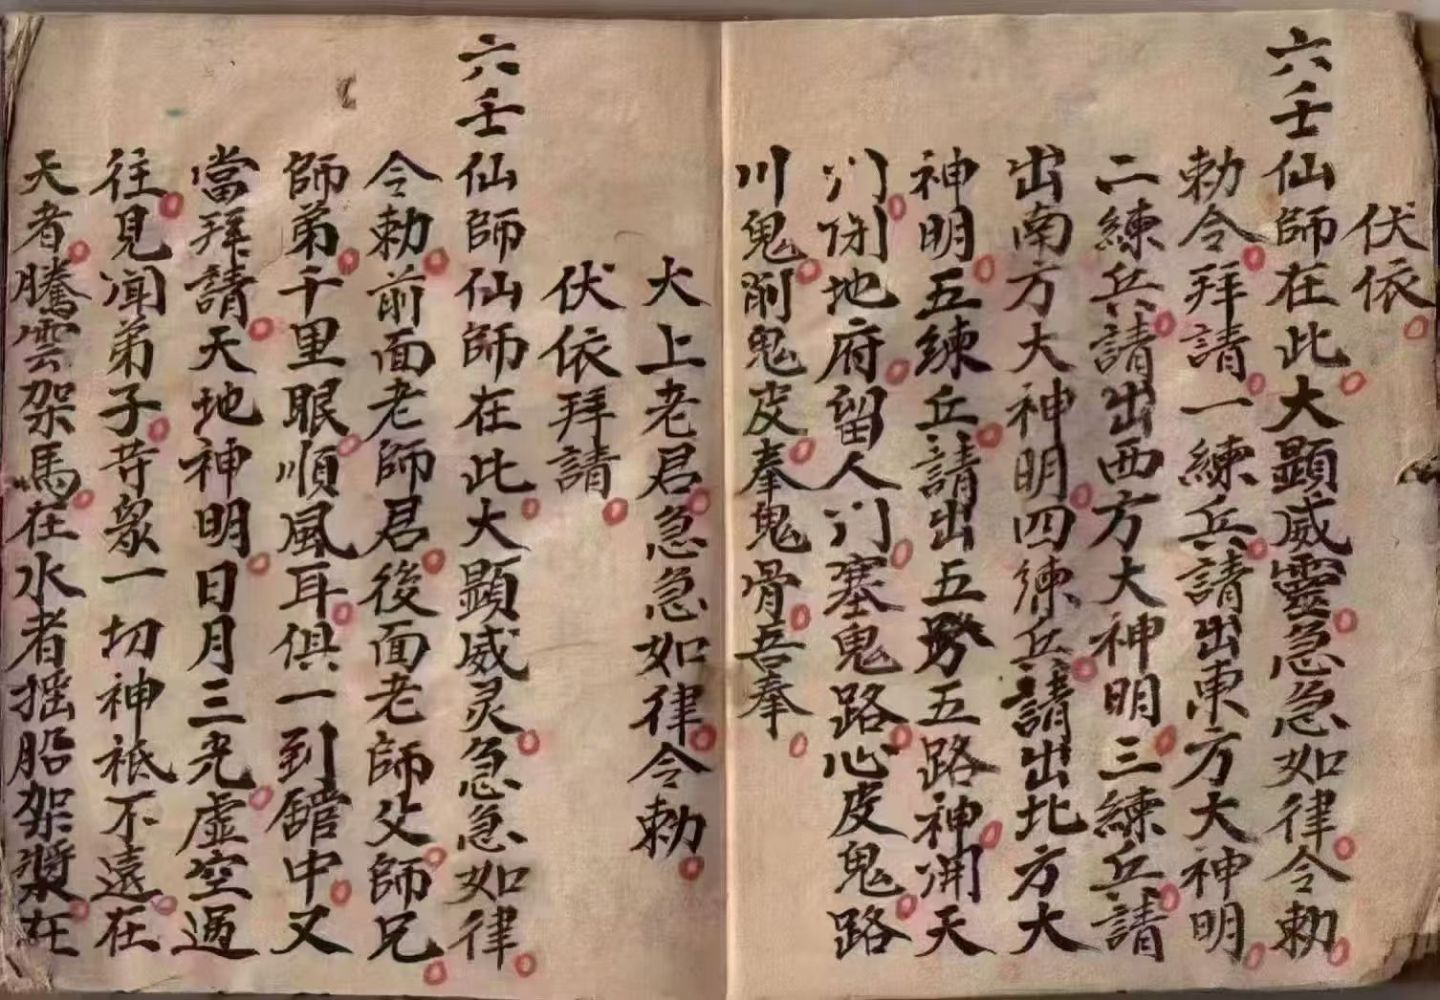 伏依
六壬仙師在此大顕威靈急急如律令勅
勅令拜請一練兵請出東方大神明
二練兵請出西方大神明三練兵請
出南方大神明四練兵請出北方大
神明五練兵請出五路神開天
门闭地府留人门塞鬼路心皮鬼路
川鬼削鬼皮奉鬼骨吾奉
大上老君急急如律令勅
伏依拜請
六壬仙師仙師在此大顕威灵急急如律
令勅前面老師君後面老師父師兄
師弟千里眼順風耳俱一到舘中又
當拜請天地神明日月三光虚空過
往見闻弟子等眾一切神祗不遠在
天者騰雲架馬在水者摇船架槳在